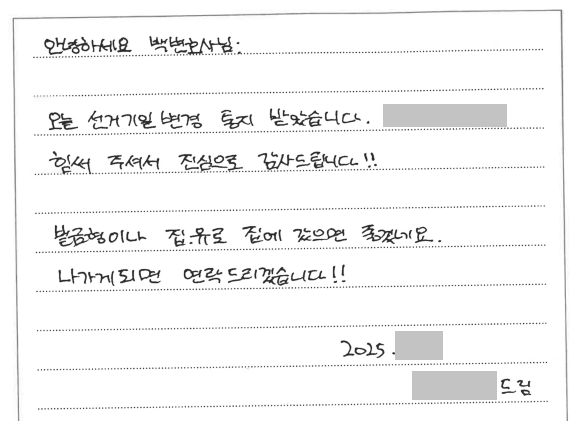 안녕하세요 백변호사님:
오늘 선거기일 변경 통지 받았습니다.
힘써 주셔서 진심으로 감사드립니다!!
벌금형이나 집.유로 집에 갔으면 좋겠네요.
나가게되면 연락드리겠습니다!!
2025.
드림